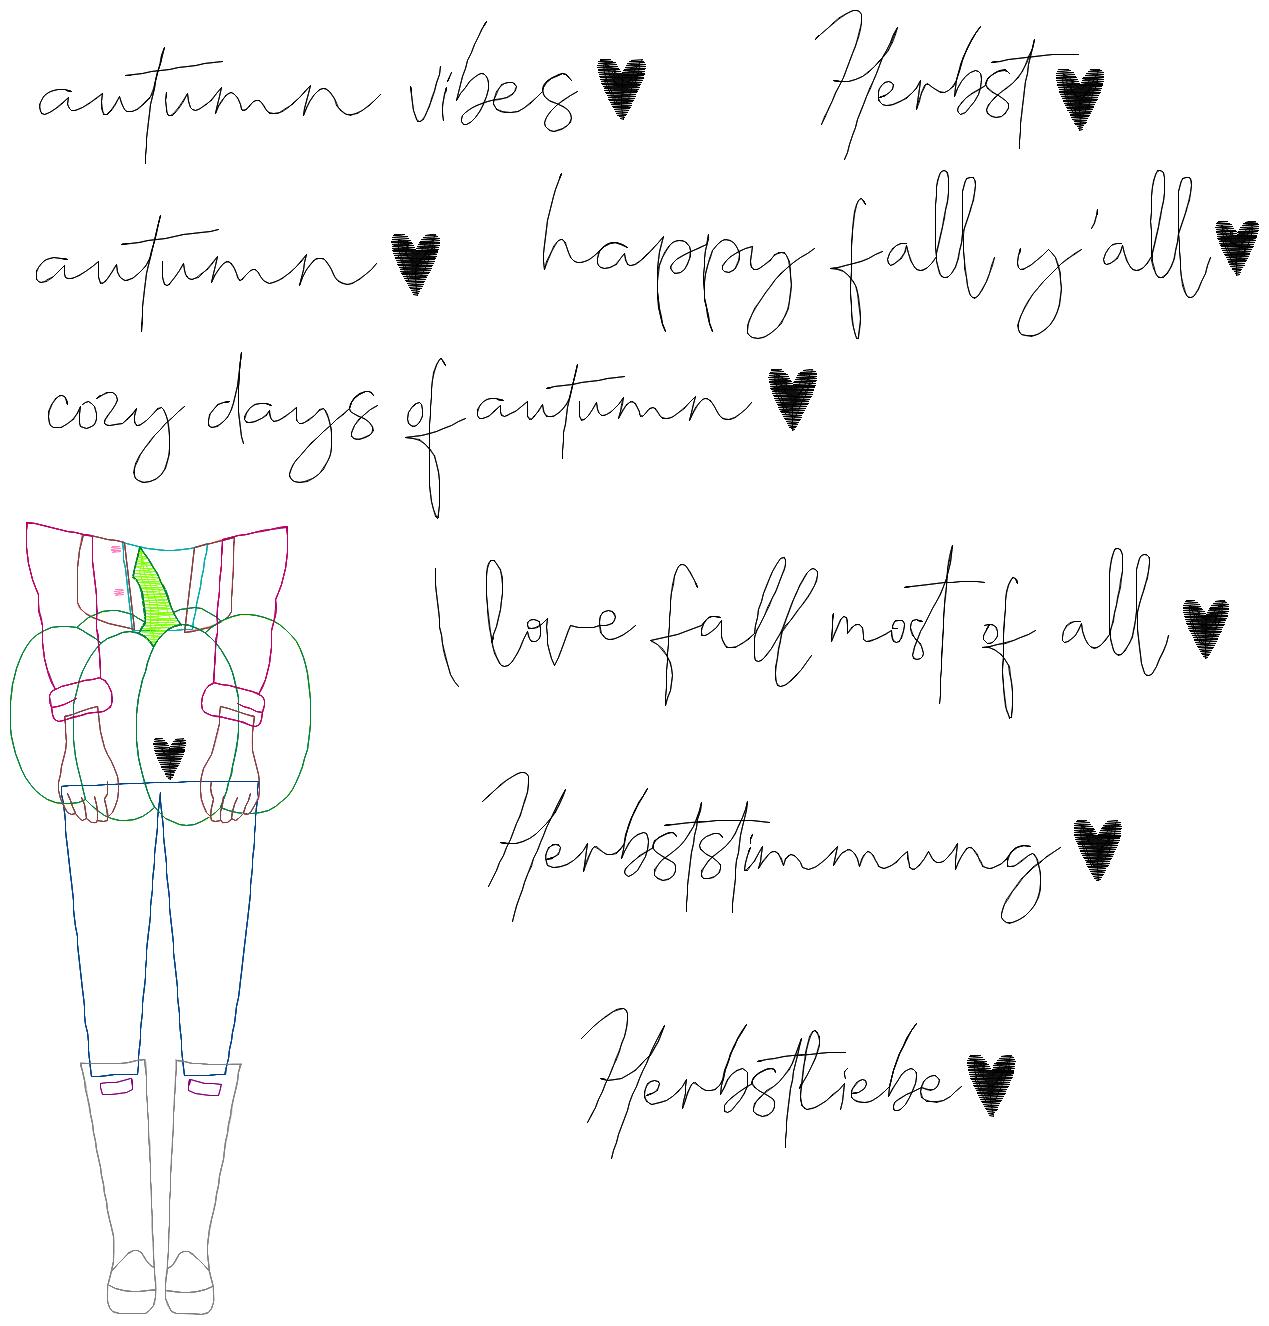 autumn vibes
Herbst
autumn
happy fall y'all
cozy days of autumn
I love fall most of all
Herbststimmung
Herbstliebe